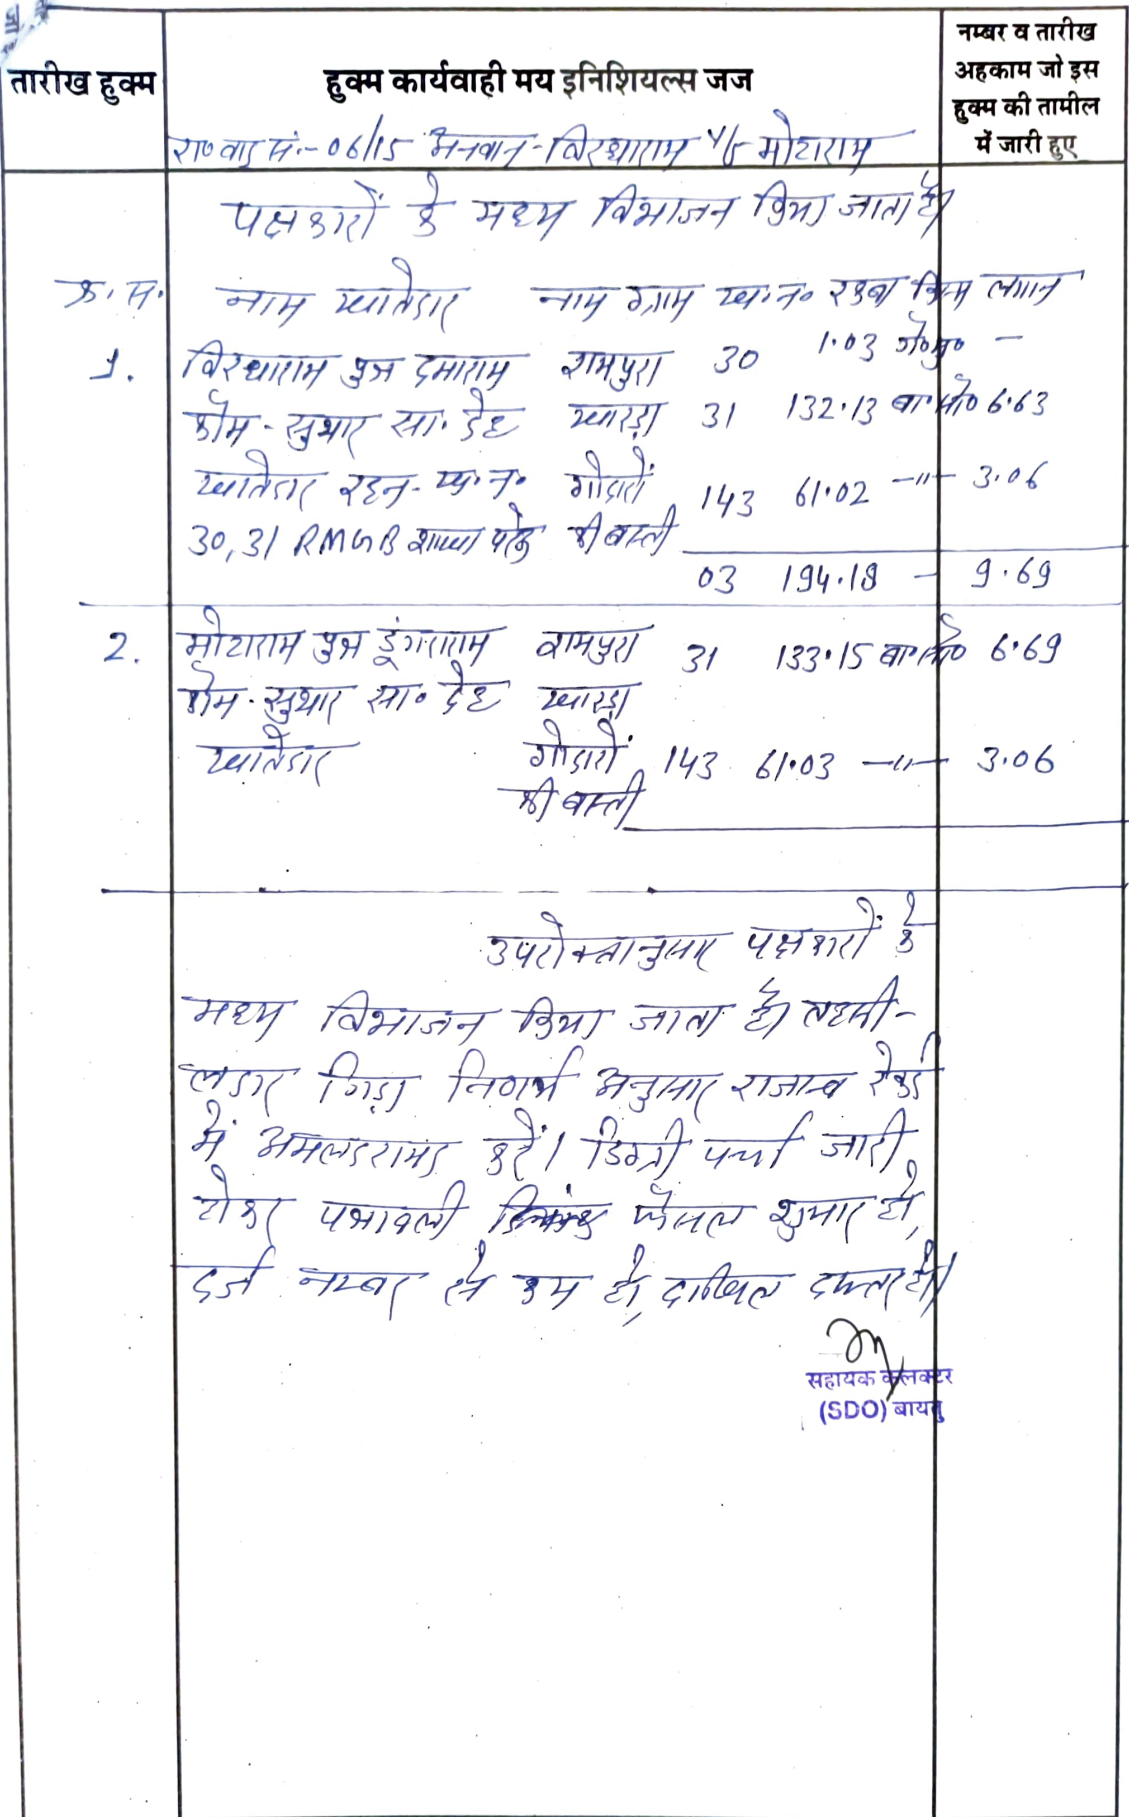 तारीख हुक्म
हुक्म कार्यवाही मय इनिशियल्स जज
नम्बर व तारीख
अहकाम जो इस
हुक्म की तामील
में जारी हुए
रा० वाद सं.- 06/15 अनवान - विरधाराम v/s मोटाराम
पक्षकारों के मध्य विभाजन किया जाता है।
क्र.स. नाम खातेदार नाम ग्राम ख.न० रकबा किस्म लगान
1. विरधाराम पुत्र दमाराम रामपुरा 30 1.03 गै०मु० -
कौम - सुथार सा. देह खारड़ा 31 132.13 बा० सो० 6.63
खातेदार रहन - ख.न. गोदारों 143 61.02 -"- 3.06
30,31 RMGB शाखा की बस्ती
03 194.18 - 9.69
2. मोटाराम पुत्र डूंगराराम रामपुरा 31 133.15 बा० सो० 6.69
कौम - सुथार सा० देह खारड़ा
खातेदार गोदारों 143 61.03 -"- 3.06
की बस्ती
उपरोक्तानुसार पक्षकारों के
मध्य विभाजन किया जाता है। तहसी-
लदार गिड़ा निर्णय अनुसार राजस्व रेकर्ड
में अमलदरामद करें। डिक्री पर्चा जारी
होकर पत्रावली फैसल शुमार हो,
दर्ज नम्बर से कम हो, दाखिल दफ्तर हो।
सहायक कलक्टर
(SDO) बायतु